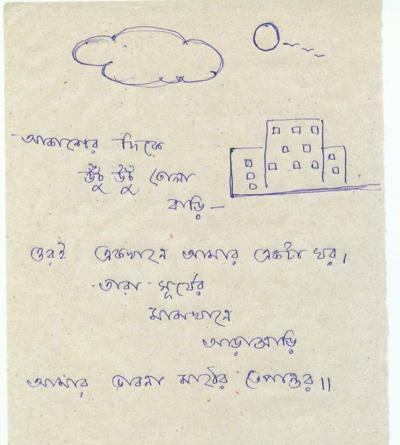 আকাশের দিকে
উঁচু উঁচু তোলা
বাড়ি —
ওরই একখানে আমার একটা ঘর।
তারা সূর্যের
মাঝখানে
আড়াআড়ি
আমার ভাবনা মাঠের তেপান্তর।।